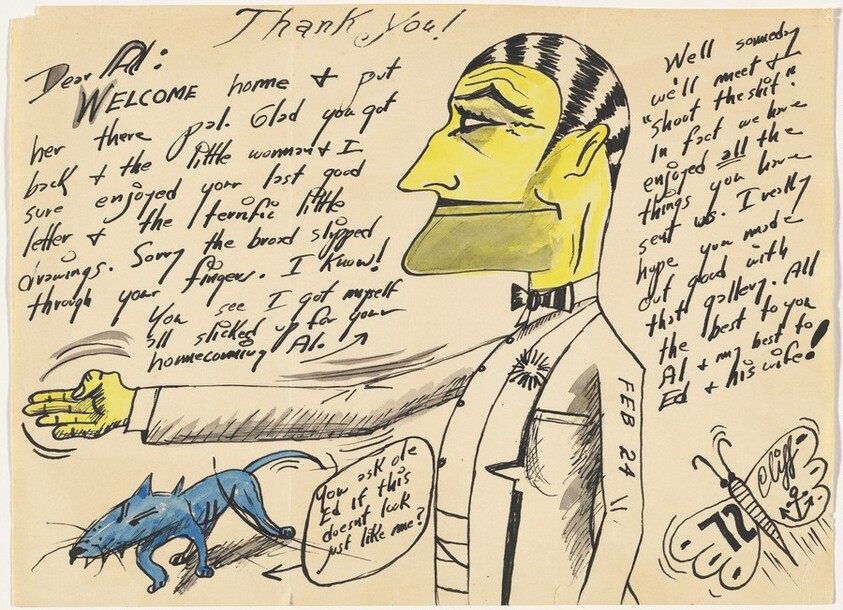 Thank you!
Dear Al:
WELCOME home & put
her there pal. Glad you got
back & the little woman & I
sure enjoyed your last good
letter & the terrific little
drawings. Sorry the broad slipped
through your fingers. I know!
You see I got myself
all slicked up for your
homecomming Al.
Well someday
we'll meet & I
"shoot the shit".
In fact we have
enjoyed all the
things you have
sent us. I really
hope you made
out good with
that gallery. All
the best to you
Al & my best to
Ed & his wife!
FEB 24
You ask ole
Ed if this
doesnt look
just like me?
Cliff
72